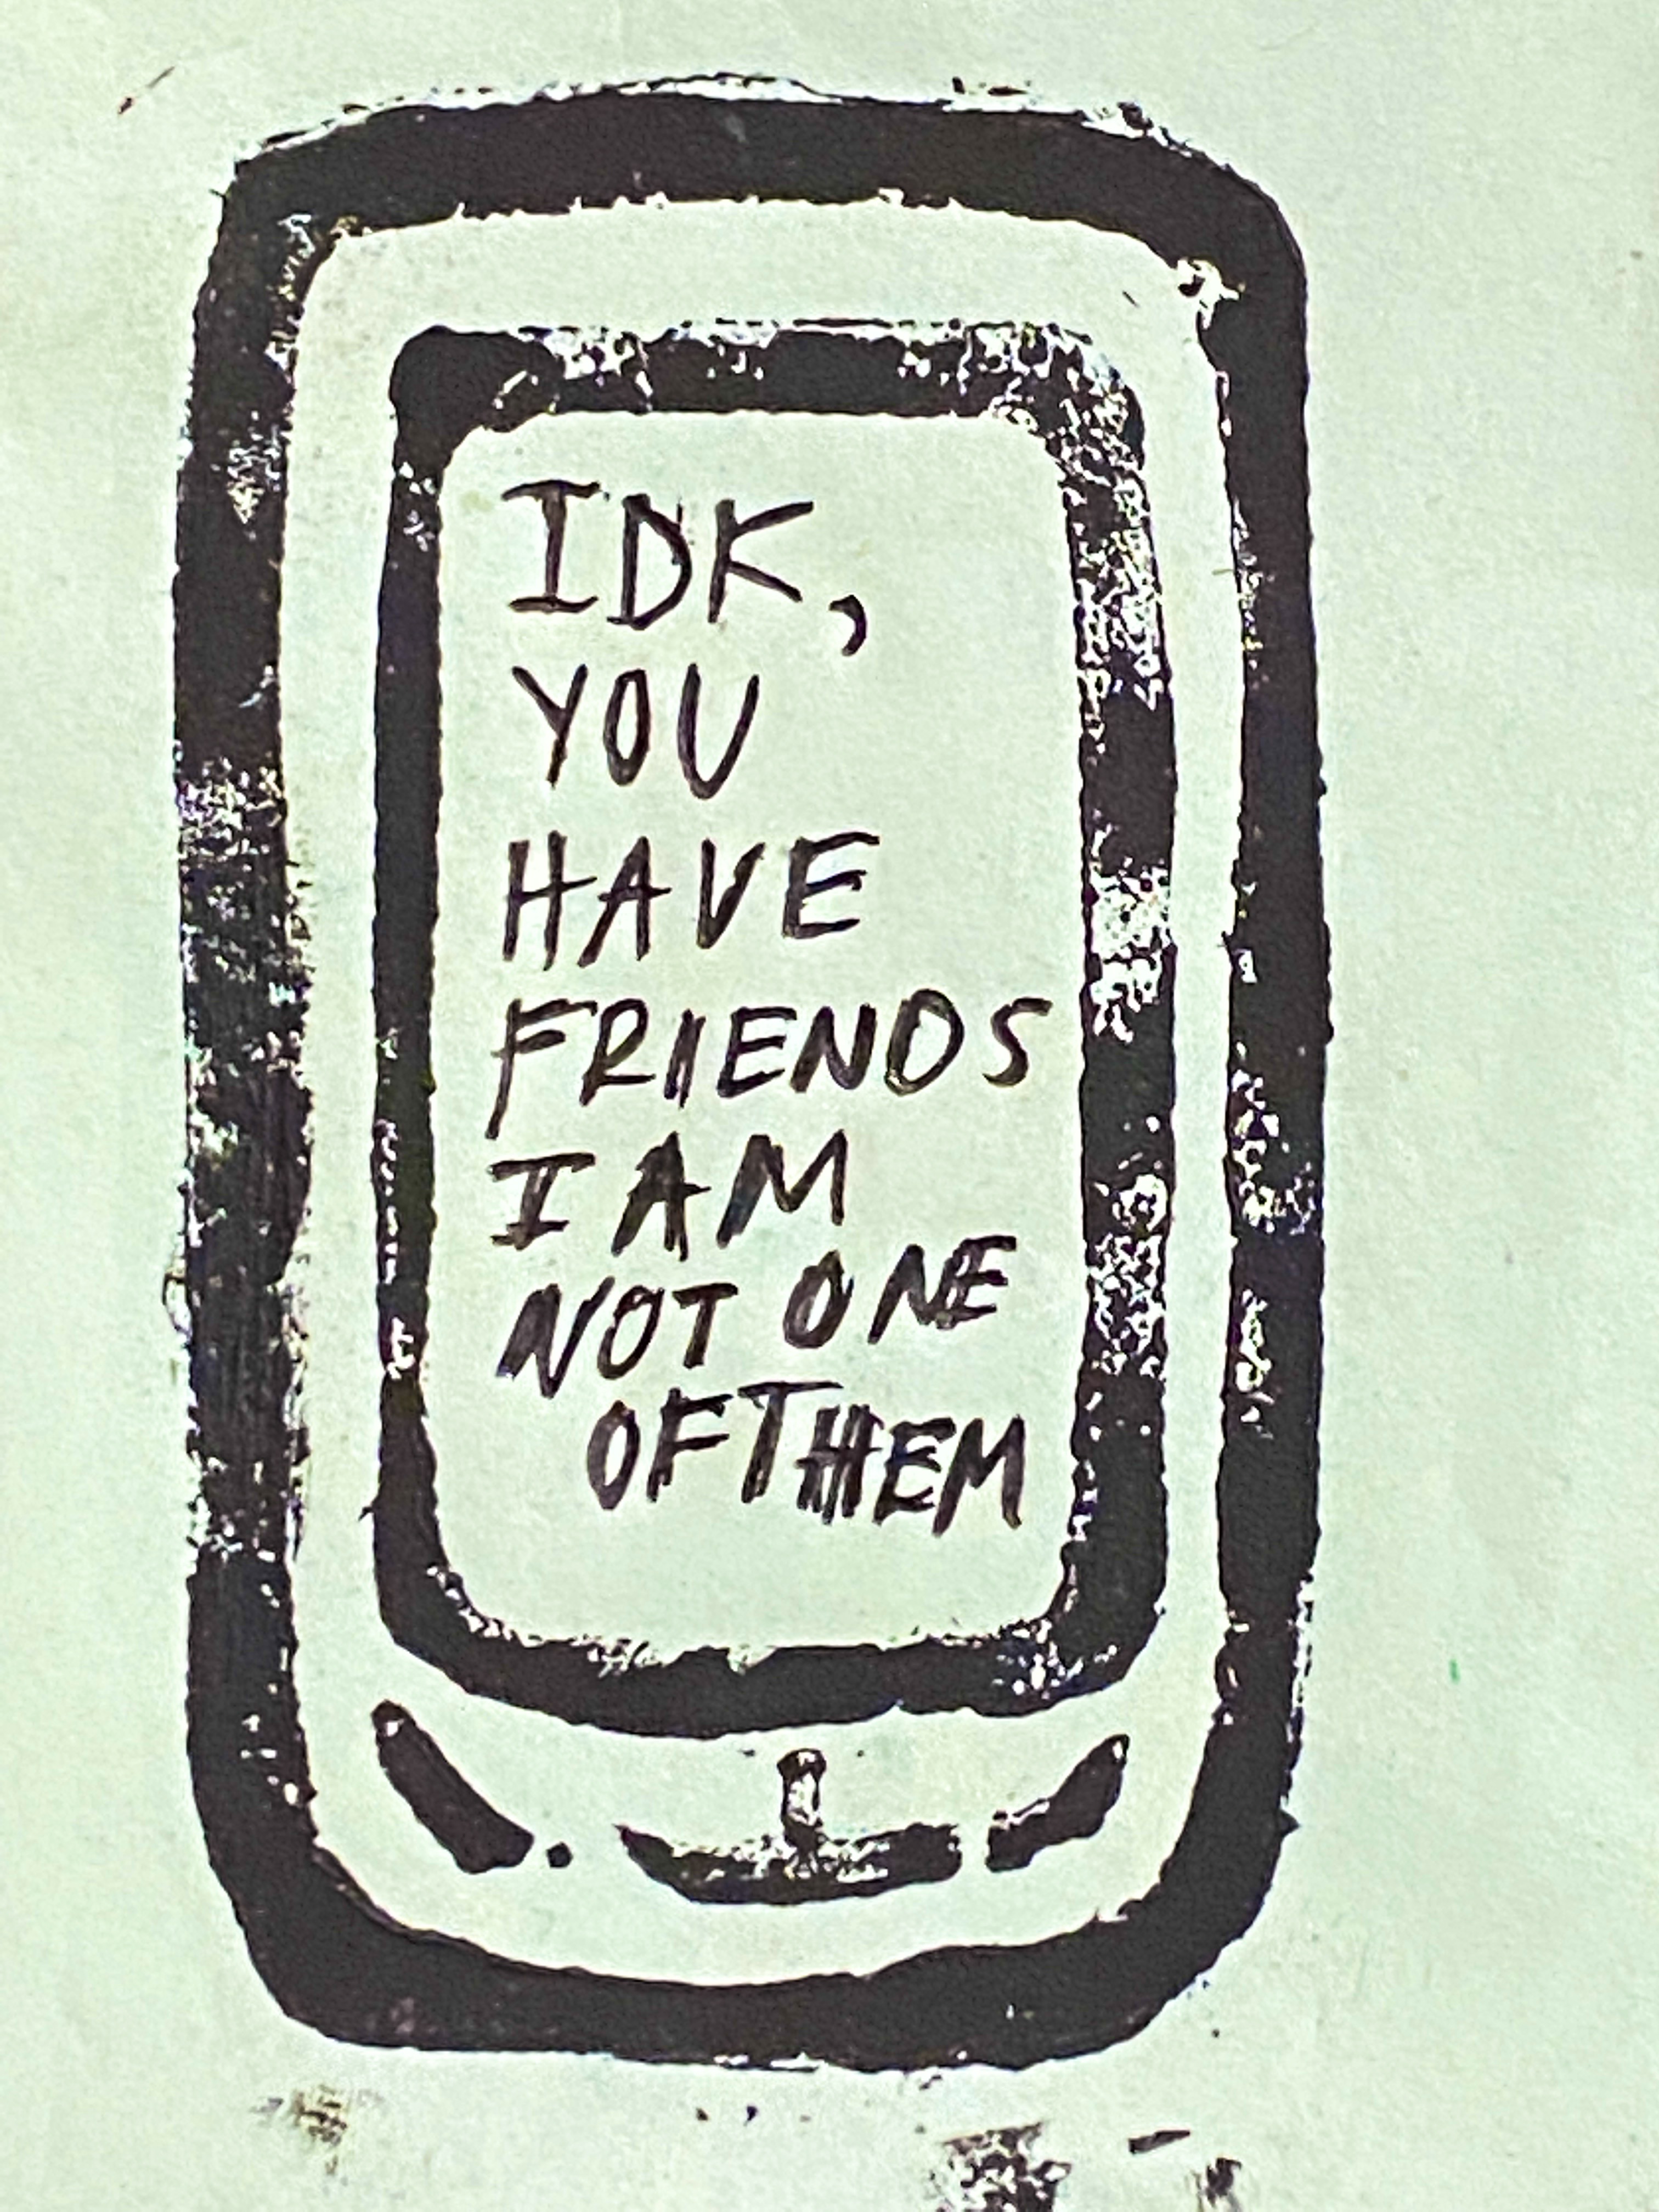 IDK,
YOU
HAVE
FRIENDS
I AM
NOT ONE
OF THEM